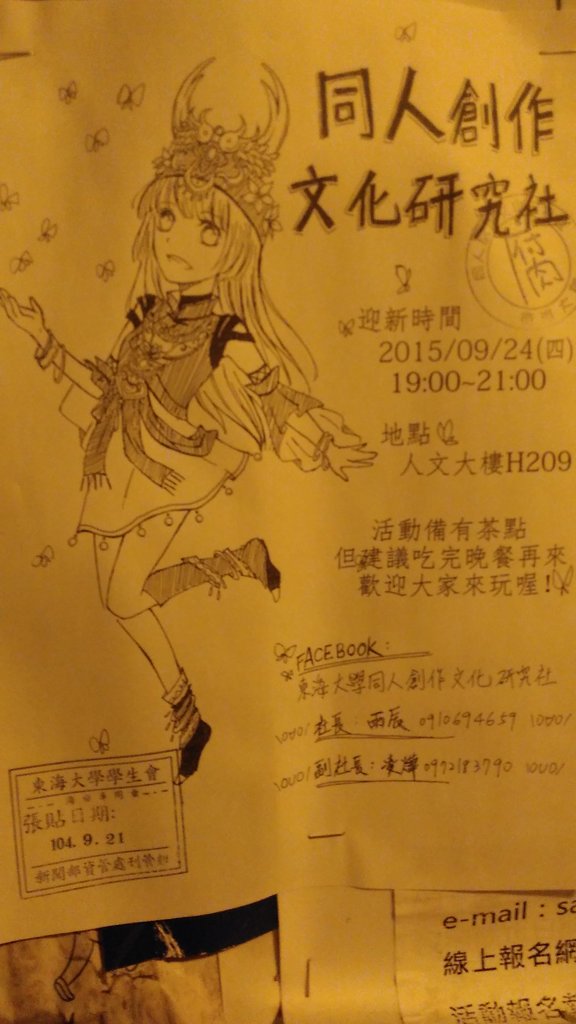 同人創作
文化研究社
迎新時間
2015/09/24(四)
19:00~21:00
地點
人文大樓H209
活動備有茶點
但建議吃完晚餐再來
歡迎大家來玩喔!
FACEBOOK:
東海大學同人創作文化研究社
\OVO/ 社長:雨辰 0910694659 \OVO/
\OVO/ 副社長:凌嬅 0972183790 \OVO/
東海大學學生會
張貼日期:
104. 9. 21
e-mail : sa
線上報名網
活動報名